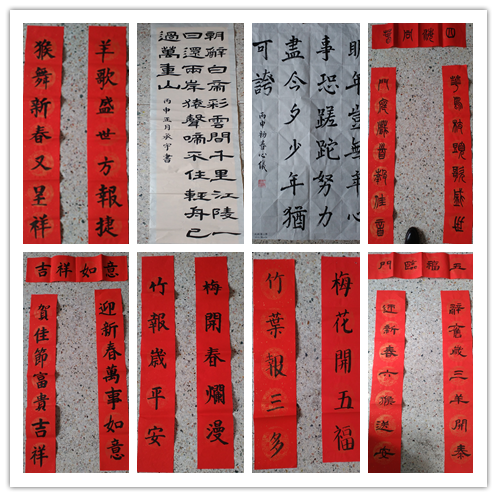 羊歌盛世方報捷
猴舞新春又呈祥
朝辭白帝彩雲間千里江陵一
日還兩岸猿聲啼不住輕舟已
過萬重山
丙申正月永宇書
明年豈無年心
事恐蹉跎努力
盡今夕少年猶
可誇
丙申初春心儀
吉祥如意
迎新春萬事如意
賀佳節富貴吉祥
梅開春爛漫
竹報歲平安
梅花開五福
竹葉報三多
五福臨門
辭舊歲三羊開泰
迎新春六猴送安